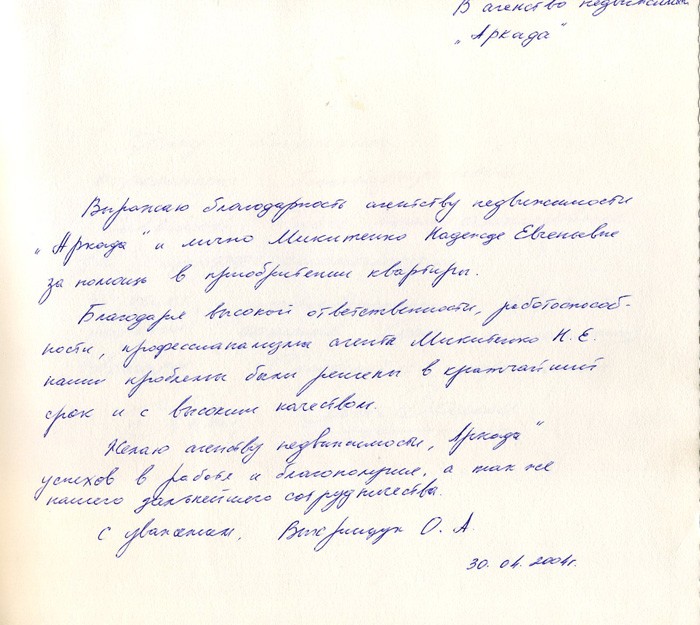 В агенство недвижимости
„Аркада"
Выражаю благодарность агентству недвижимости
„Аркада" и лично Микитенко Надежде Евгеньевне
за помощь в приобритении квартиры.
Благодаря высокой ответственности, работоспособ-
ности, профессианализму агента Микитенко Н. Е.
наши проблемы были решены в кратчайший
срок и с высоким качеством.
Желаю агенству недвижимости „Аркада"
успехов в работе и благополучие, а так же
нашего дальнейшего сотрудничества.
С уважением, О. А.
30. 04. 2004г.